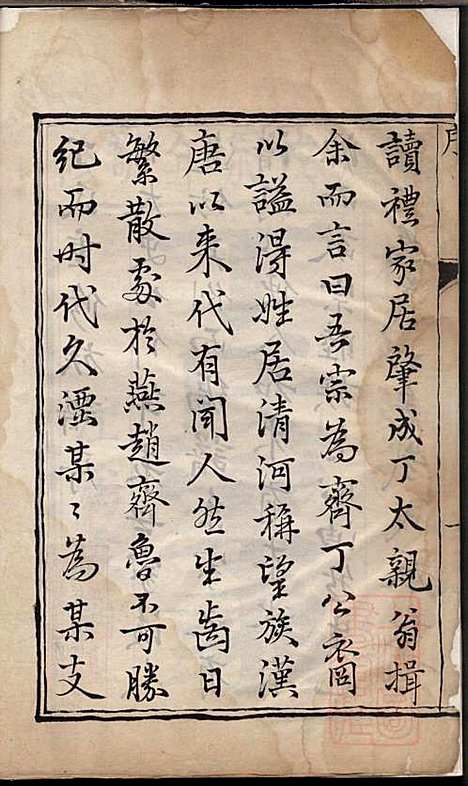 讀禮家居肇成丁太親翁揖
余而言曰吾宗為齊丁公裔
以謚得姓居清河稱望族漢
唐以來代有聞人然生齒日
繁散處於燕趙齊魯不可勝
紀而时代久湮某〻為某支